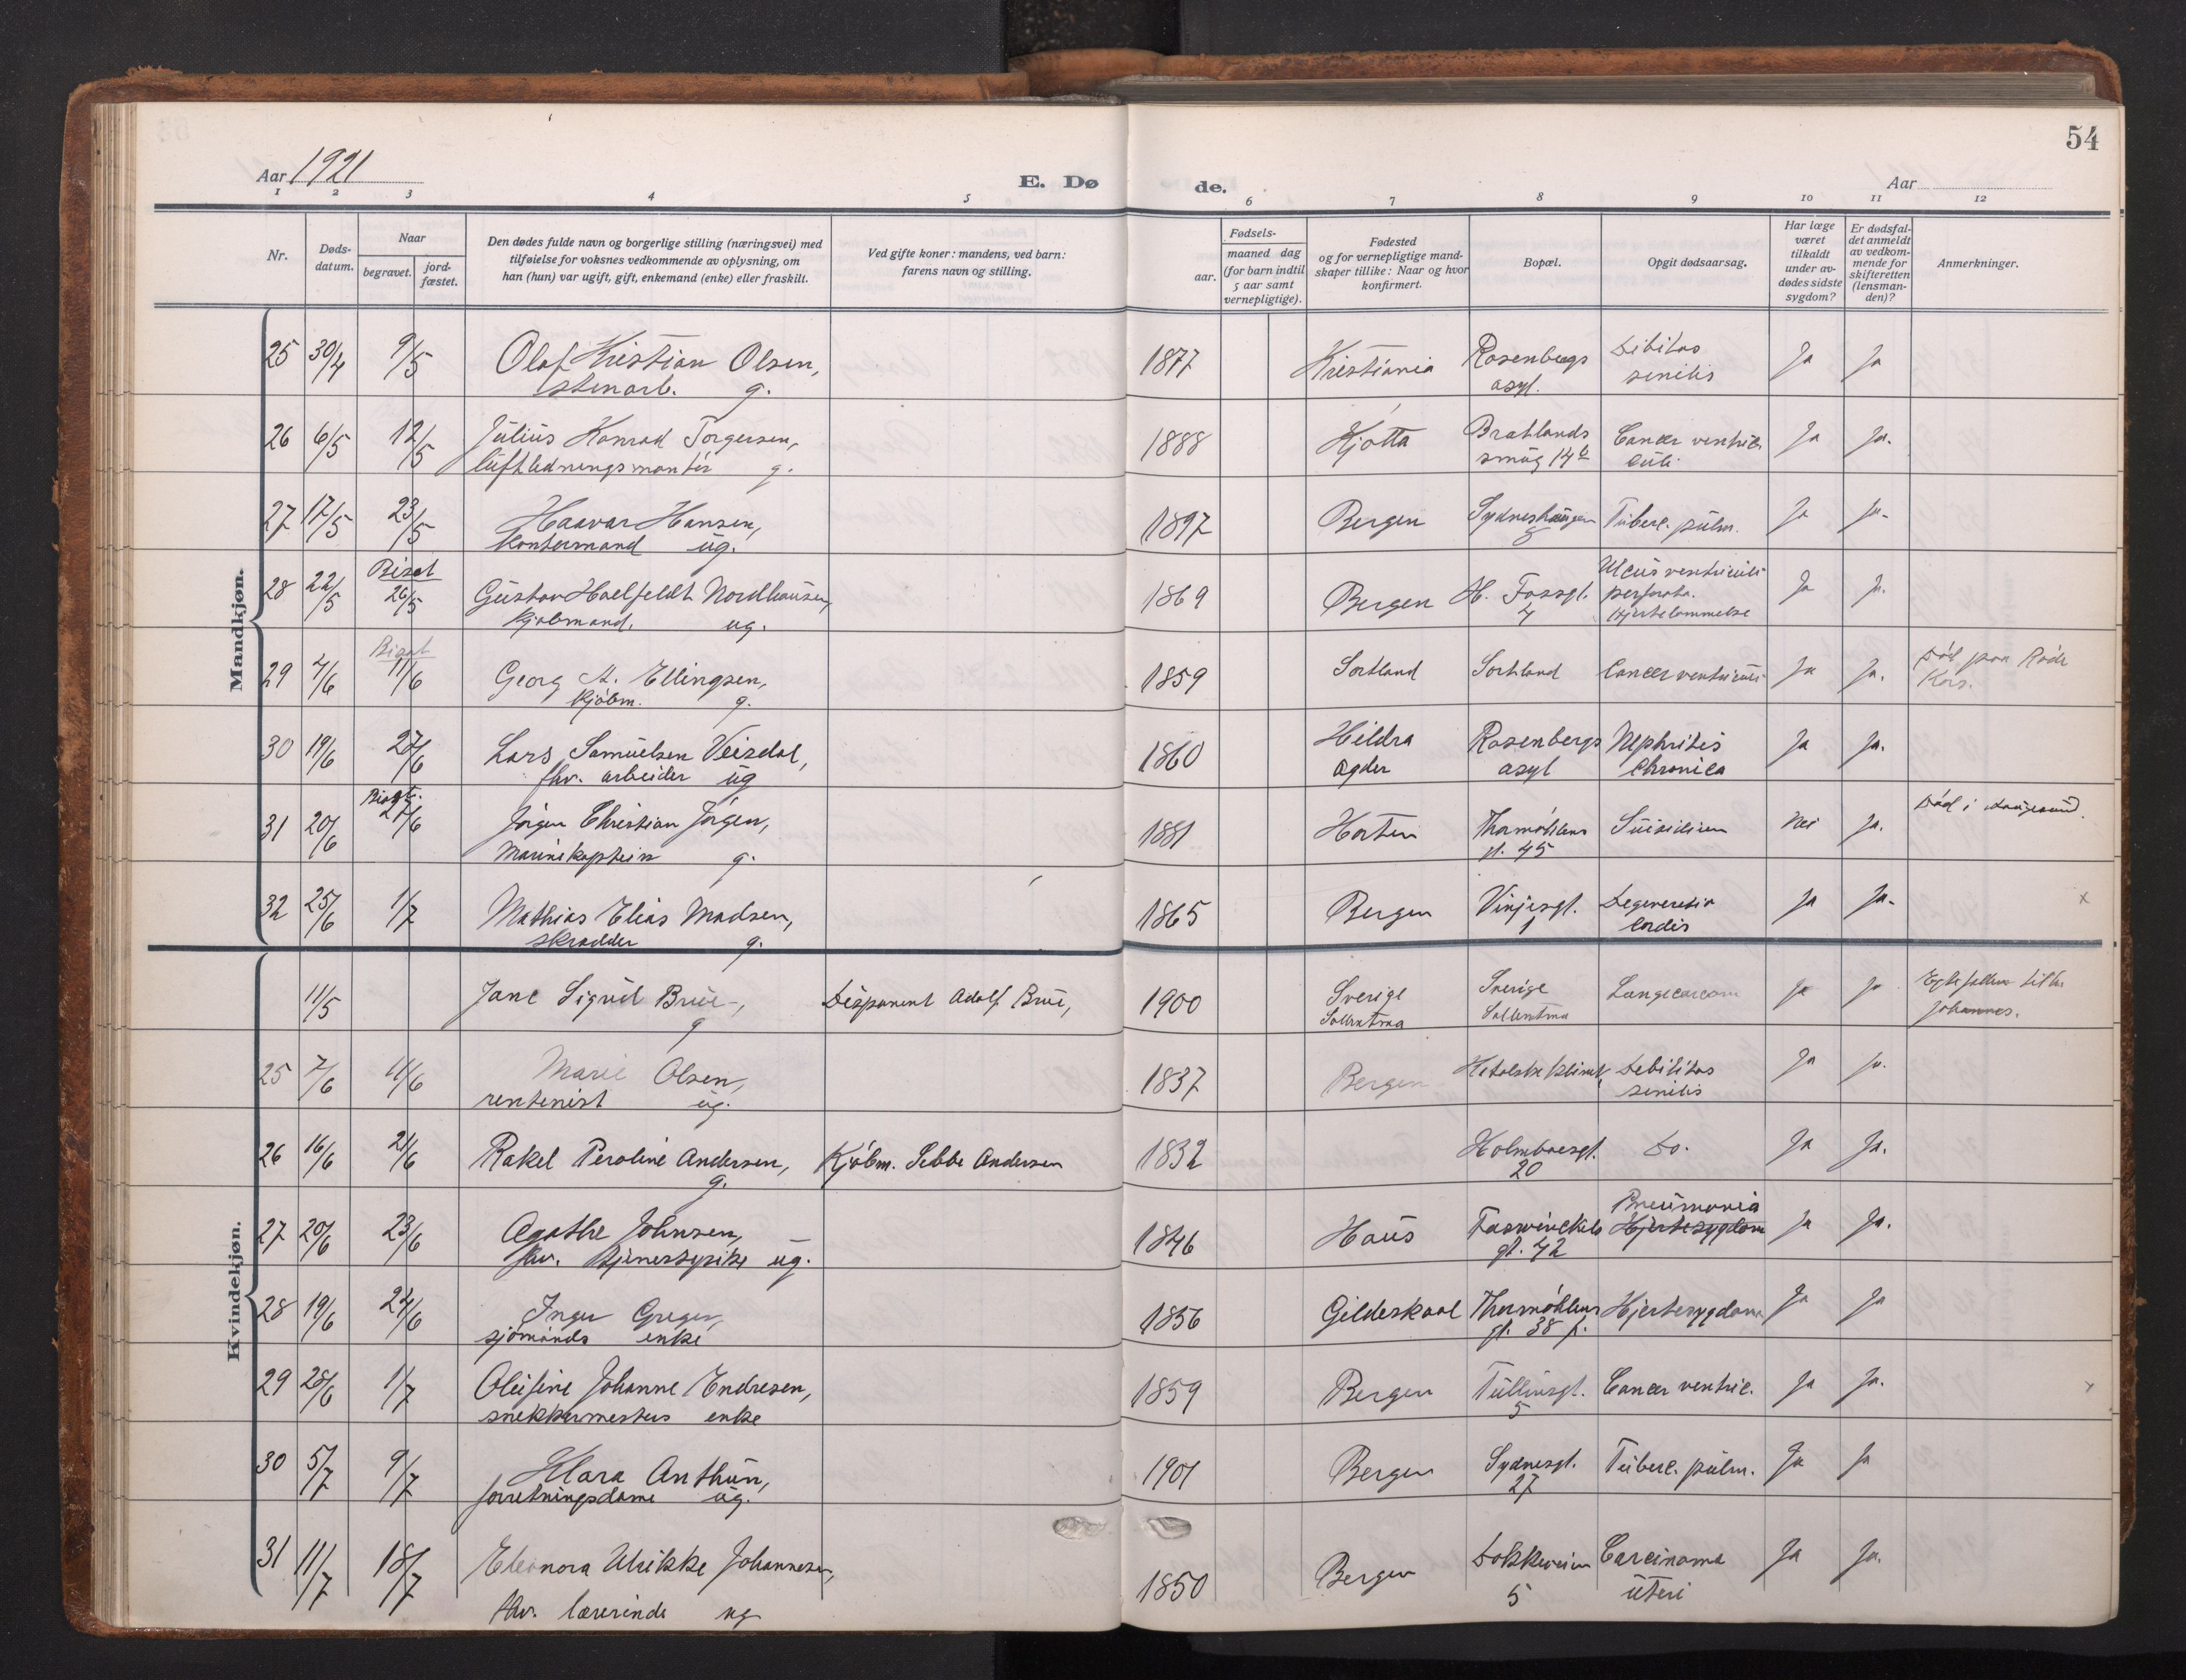 54
Aar 1921
E. Dø de.
Aar
1 2 3 4 5 6 7 8 9 10 11 12
Nr.
Døds-
datum.
Naar
begravet.
jord-
fæstet.
Den dødes fulde navn og borgerlige stilling (næringsvei) med
tilføielse for voksnes vedkommende av oplysning, om
han (hun) var ugift, gift, enkemand (enke) eller fraskilt.
Ved gifte koner: mandens, ved barn:
farens navn og stilling.
Fødsels-
aar.
maaned dag
(for barn indtil
5 aar samt
vernepligtige).
Fødested
og for vernepligtige mand-
skaper tillike: Naar og hvor
konfirmert.
Bopæl.
Opgit dødsaarsag.
Har læge
været
tilkaldt
under av-
dødes sidste
sygdom?
Er dødsfal-
det anmeldt
av vedkom-
mende for
skifteretten
(lensman-
den)?
Anmerkninger.
Mandkjøn.
25 30/4 9/5 Olaf Kristian Olsen, 1877 Kristiania Rosenbergs Debilitas Ja Ja
stenarb. g. asyl. senilis
26 6/5 12/5 Julius Konrad Torgersen, 1888 Kjøtta Bratlands Cancer ventric Ja Ja.
luftledningsmontør g. smug 14 culi
27 17/5 23/5 Haavar Hansen, 1897 Bergen Sydneshaugen Tuberc. pulm. Ja Ja.
kontormand ug.
Bisat
28 22/5 26/5 Gustav Nordhausen, 1869 Bergen H. Fossgt. Ulcus ventriculi Ja Ja.
kjøbmand. ug. 4 perforata.
Hjertelammelse
Bisat
29 7/6 11/6 Georg A. Ellingsen, 1859 Sortland Sortland Cancer ventriculi Ja Ja. Død paa Røde
kjøbm. g. Kors.
30 19/6 27/6 Lars Samuelsen Veisdal, 1860 Hildra Rosenbergs Nephritis Ja Ja.
fhv. arbeider ug Agder asyl Chronica
Bisat.
31 20/6 27/6 Jørgen Christian Jørgen, 1881 Horten Thormøhlens Suicidium Nei Ja. Død i Haugesund.
Marinekaptein g. gt. 45
32 25/6 1/7 Mathias Elias Madsen, 1865 Bergen Vinjesgt. Degeneratio Ja Ja. x
skrædder g. 1 cordis
Kvindekjøn.
11/5 Jane Sigrid Brue, Disponent Adolf Brue, 1900 Sverige Sverige Lungecarcom Ja Ja
g Sollentuna Sollentuna Johannes.
25 7/6 11/6 Marie Olsen, 1837 Bergen Debilitas Ja Ja.
rentenist ug. senilis
26 16/6 21/6 Rakel Peroline Andersen, Kjøbm. Sebbe Andersen 1832 Holmboesgt. Do. Ja Ja.
g. 20
27 20/6 23/6 Agathe Johnsen, 1846 Haus Faswinckels Pneumonia Ja Ja.
fhv. tjenerspike ug. gt. 42 Hjertesygdom
28 19/6 24/6 Inger Greger, 1856 Gildeskaal Thormøhlens Hjertesygdom Ja Ja
sjømands enke gt. 38 f.
29 28/6 1/7 Olufine Johanne Endresen, 1859 Bergen Tullinsgt. Cancer ventric. Ja Ja.
snekkermesters enke 5
30 5/7 9/7 Klara Anthun, 1901 Bergen Sydnesgt. Tuberc. pulm. Ja Ja
forretningsdame ug. 27
31 11/7 18/7 Eleonora Ulrikke Johannesen, 1850 Bergen Dokkeveien Carcinoma Ja Ja.
fhv. lærerinde ug 5 uteri